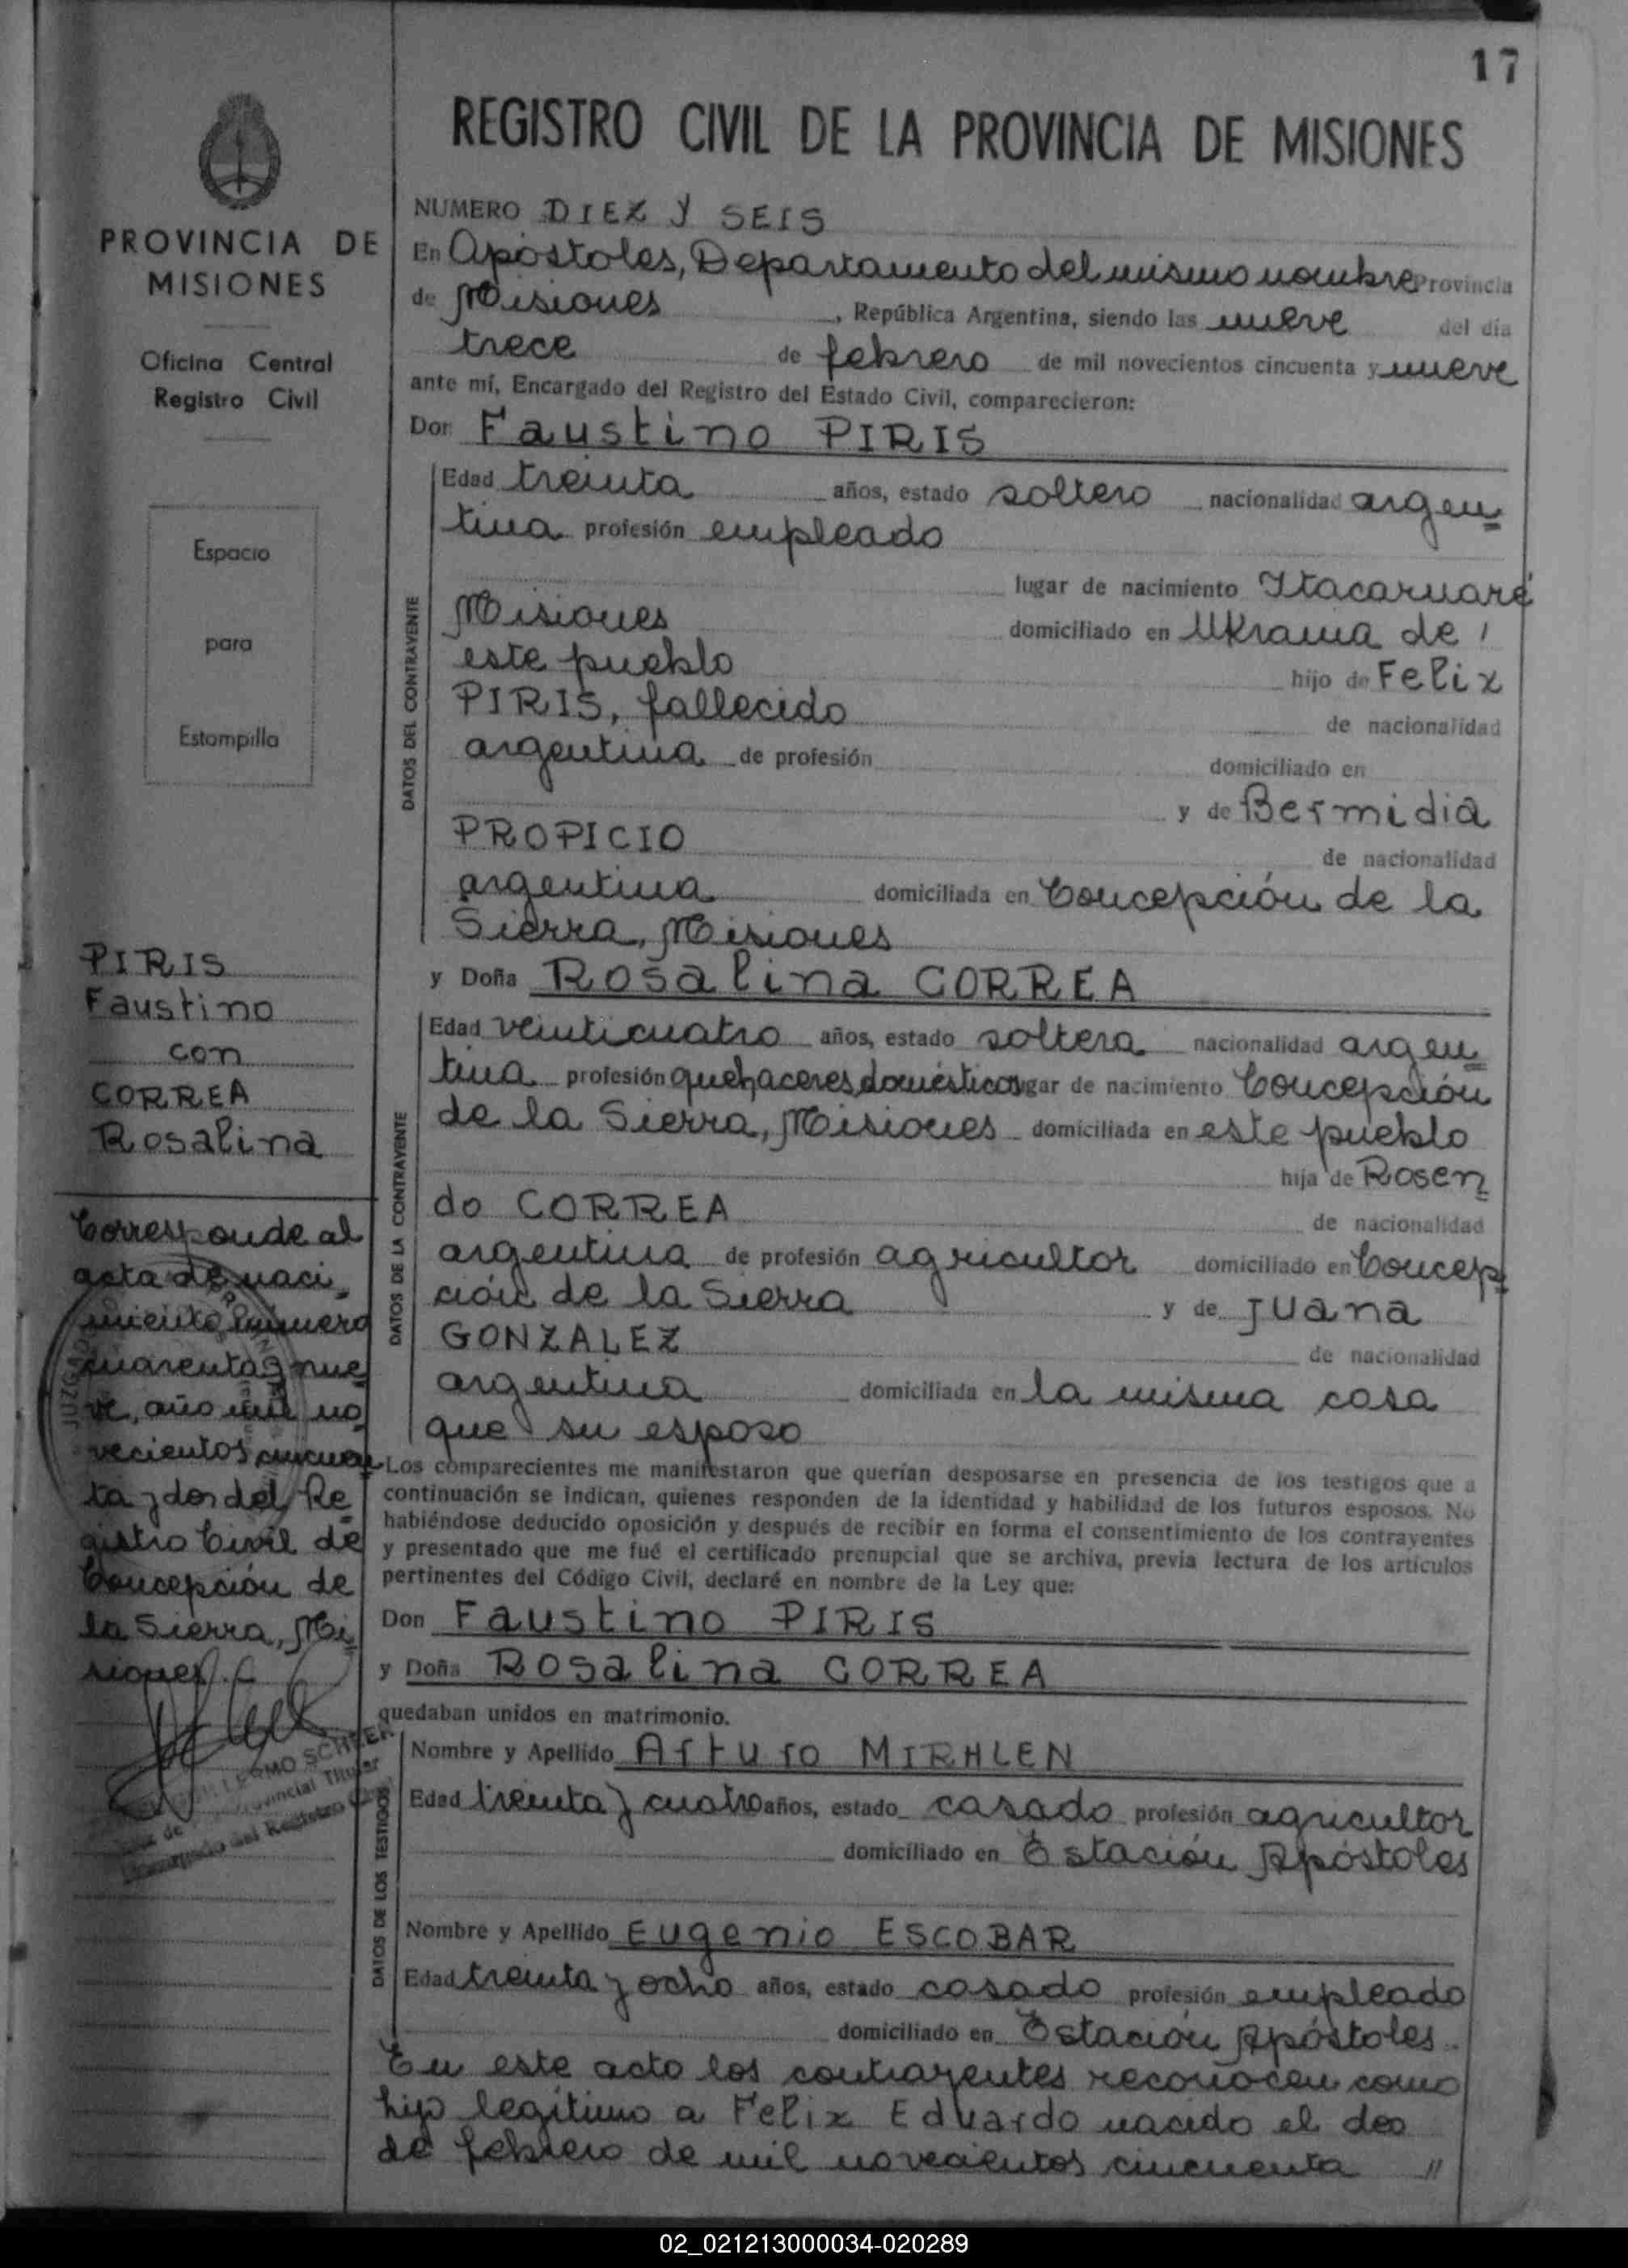 17
REGISTRO CIVIL DE LA PROVINCIA DE MISIONES
PROVINCIA DE
MISIONES
Oficina Central
Registro Civil
Espacio
para
Estampilla
PIRIS
Faustino
con
CORREA
Rosalina
Corresponde al
acta de naci
miento número
cuarenta y nue
ve, año mil no
vecientos cincuen
ta y dos del Re
gistro Civil de
Concepción de
la Sierra, Mi
siones.
NUMERO DIEZ Y SEIS
En Apóstoles, Departamento del mismo nombre Provincia
de Misiones, República Argentina, siendo las nueve del día
trece de febrero de mil novecientos cincuenta y nueve
ante mí, Encargado del Registro del Estado Civil, comparecieron:
Don Faustino PIRIS
DATOS DEL CONTRAYENTE
Edad treinta años, estado soltero nacionalidad argen
tina profesión empleado
lugar de nacimiento Itacaruaré
Misiones domiciliado en Ukrania de
este pueblo hijo de Felix
PIRIS, fallecido de nacionalidad
argentina de profesión domiciliado en
y de Bermidia
PROPICIO de nacionalidad
argentina domiciliada en Concepción de la
Sierra, Misiones
y Doña Rosalina CORREA
DATOS DE LA CONTRAYENTE
Edad veinticuatro años, estado soltera nacionalidad argen
tina profesión quehaceres domésticos lugar de nacimiento Concepción
de la Sierra, Misiones domiciliada en este pueblo
hija de Rosen
do CORREA de nacionalidad
argentina de profesión agricultor domiciliado en Concep
ción de la Sierra y de Juana
GONZALEZ de nacionalidad
argentina domiciliada en la misma casa
que su esposo
Los comparecientes me manifestaron que querían desposarse en presencia de los testigos que a
continuación se indican, quienes responden de la identidad y habilidad de los futuros esposos. No
habiéndose deducido oposición y después de recibir en forma el consentimiento de los contrayentes
y presentado que me fué el certificado prenupcial que se archiva, previa lectura de los artículos
pertinentes del Código Civil, declaré en nombre de la Ley que:
Don Faustino PIRIS
y Doña Rosalina CORREA
quedaban unidos en matrimonio.
DATOS DE LOS TESTIGOS
Nombre y Apellido Arturo MIRHLEN
Edad treinta y cuatro años, estado casado profesión agricultor
domiciliado en Estación Apóstoles
Nombre y Apellido Eugenio ESCOBAR
Edad treinta y ocho años, estado casado profesión empleado
domiciliado en Estación Apóstoles
En este acto los contrayentes reconocen como
hijo legítimo a Felix Eduardo nacido el dos
de febrero de mil novecientos cincuenta "
02_021213000034-020289